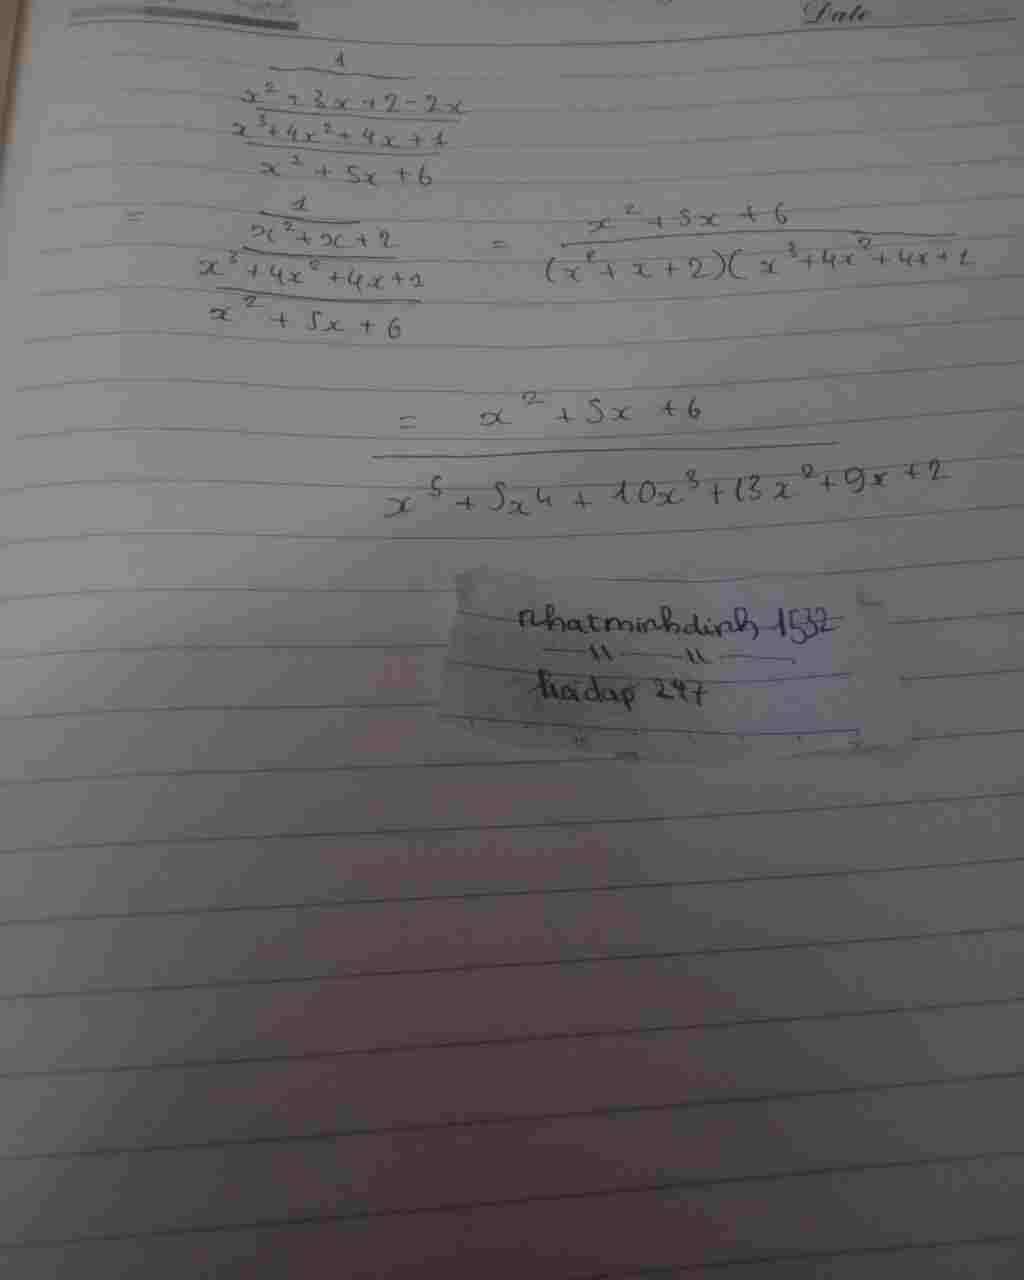 Date
1
x² + 3x + 2 - 2x
x³ + 4x² + 4x + 1
x² + 5x + 6
= 1
x² + x + 2
x³ + 4x² + 4x + 1
x² + 5x + 6
= x² + 5x + 6
(x² + x + 2)(x³ + 4x² + 4x + 1
= x² + 5x + 6
x⁵ + 5x⁴ + 10x³ + 13x² + 9x + 2
nhatminhdinh 1532
hoidap 247